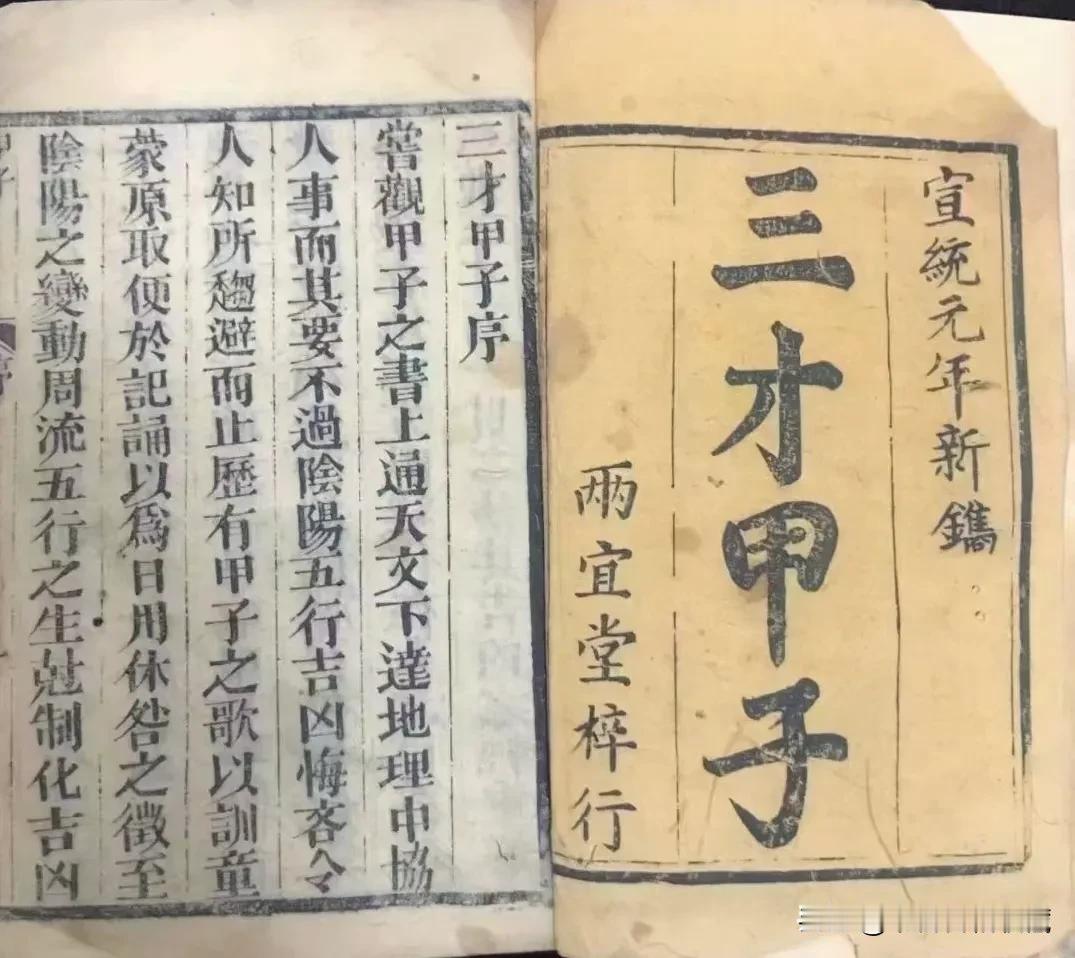 宣統元年新鐫
三才甲子
兩宜堂梓行
三才甲子序
嘗觀甲子之書上通天文下達地理中協
人事而其要不過陰陽五行吉凶悔吝令
人知所趨避而止歷有甲子之歌以訓童
蒙原取便於記誦以為日用休咎之徵至
陰陽之變動周流五行之生尅制化吉凶